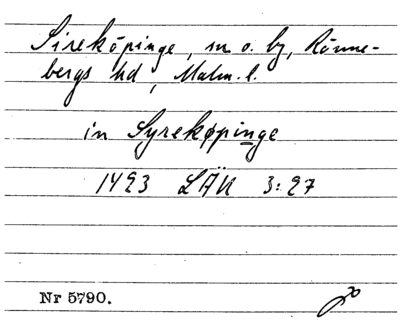 Sireköpinge, sn o. by, Rönne-
bergs hd, Malm. l.
in Syrekøpinge
1493 LÄU 3:27
Nr 5790.